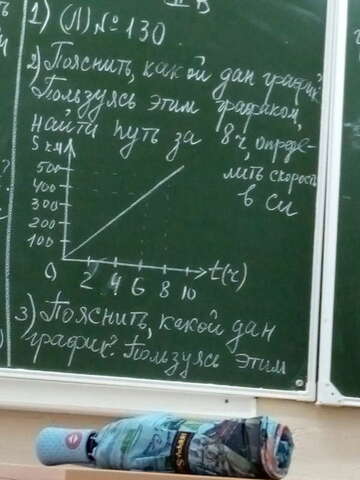 II В
1) (Л) № 130
2) Пояснить, какой дан график?
Пользуясь этим графиком,
найти путь за 8 ч, опреде-
лить скорость
в СИ
S км
500
400
300
200
100
0 2 4 6 8 10 t(ч)
3) Пояснить, какой дан
график? Пользуясь этим